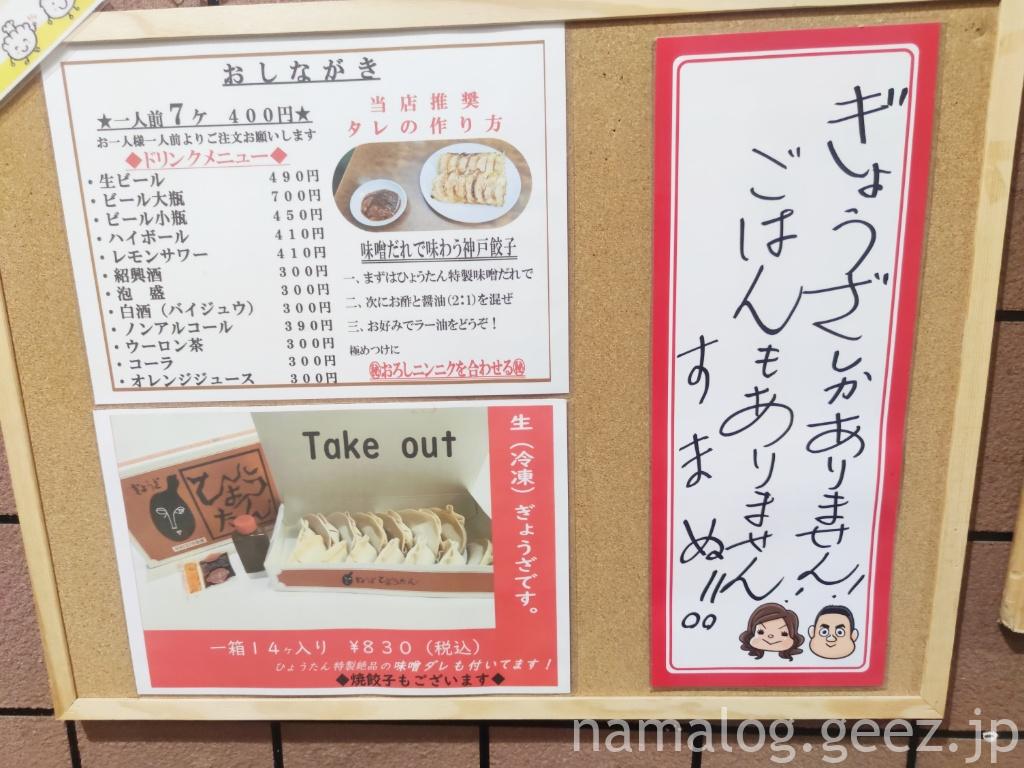 おしながき
★一人前7ヶ 400円★
お一人様一人前よりご注文お願いします
◆ドリンクメニュー◆
・生ビール 490円
・ビール大瓶 700円
・ビール小瓶 450円
・ハイボール 410円
・レモンサワー 410円
・紹興酒 300円
・泡 盛 300円
・白酒（バイジュウ） 300円
・ノンアルコール 390円
・ウーロン茶 300円
・コーラ 300円
・オレンジジュース 300円
当店推奨
タレの作り方
味噌だれで味わう神戸餃子
一、まずはひょうたん特製味噌だれで
二、次にお酢と醤油(2:1)を混ぜ
三、お好みでラー油をどうぞ！
極めつけに
㊙おろしニンニクを合わせる㊙
Take out
ひょうたん
生（冷凍）ぎょうざです。
一箱14ヶ入り ¥830（税込）
ひょうたん特製絶品の味噌ダレも付いてます！
◆焼餃子もございます◆
ぎょうざしかありません！！
ごはんもありません
すまぬ!!
namalog.geez.jp